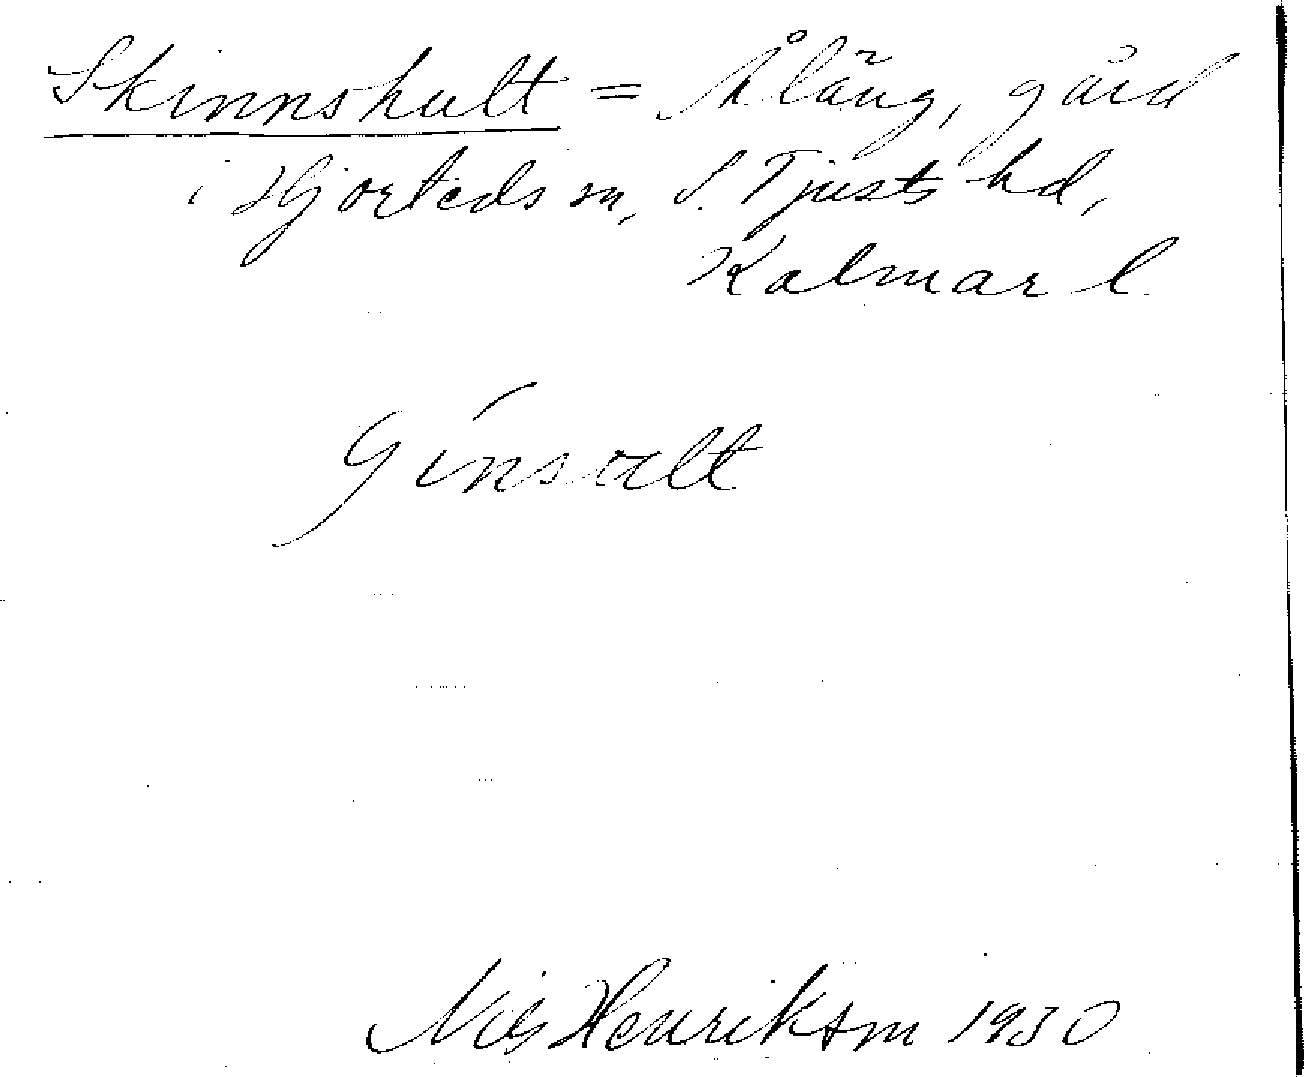 Skinnshult = Åläng, gård
i Hjorteds sn, S. Tjusts hd,
Kalmar l.
Nils Henrikson 1930